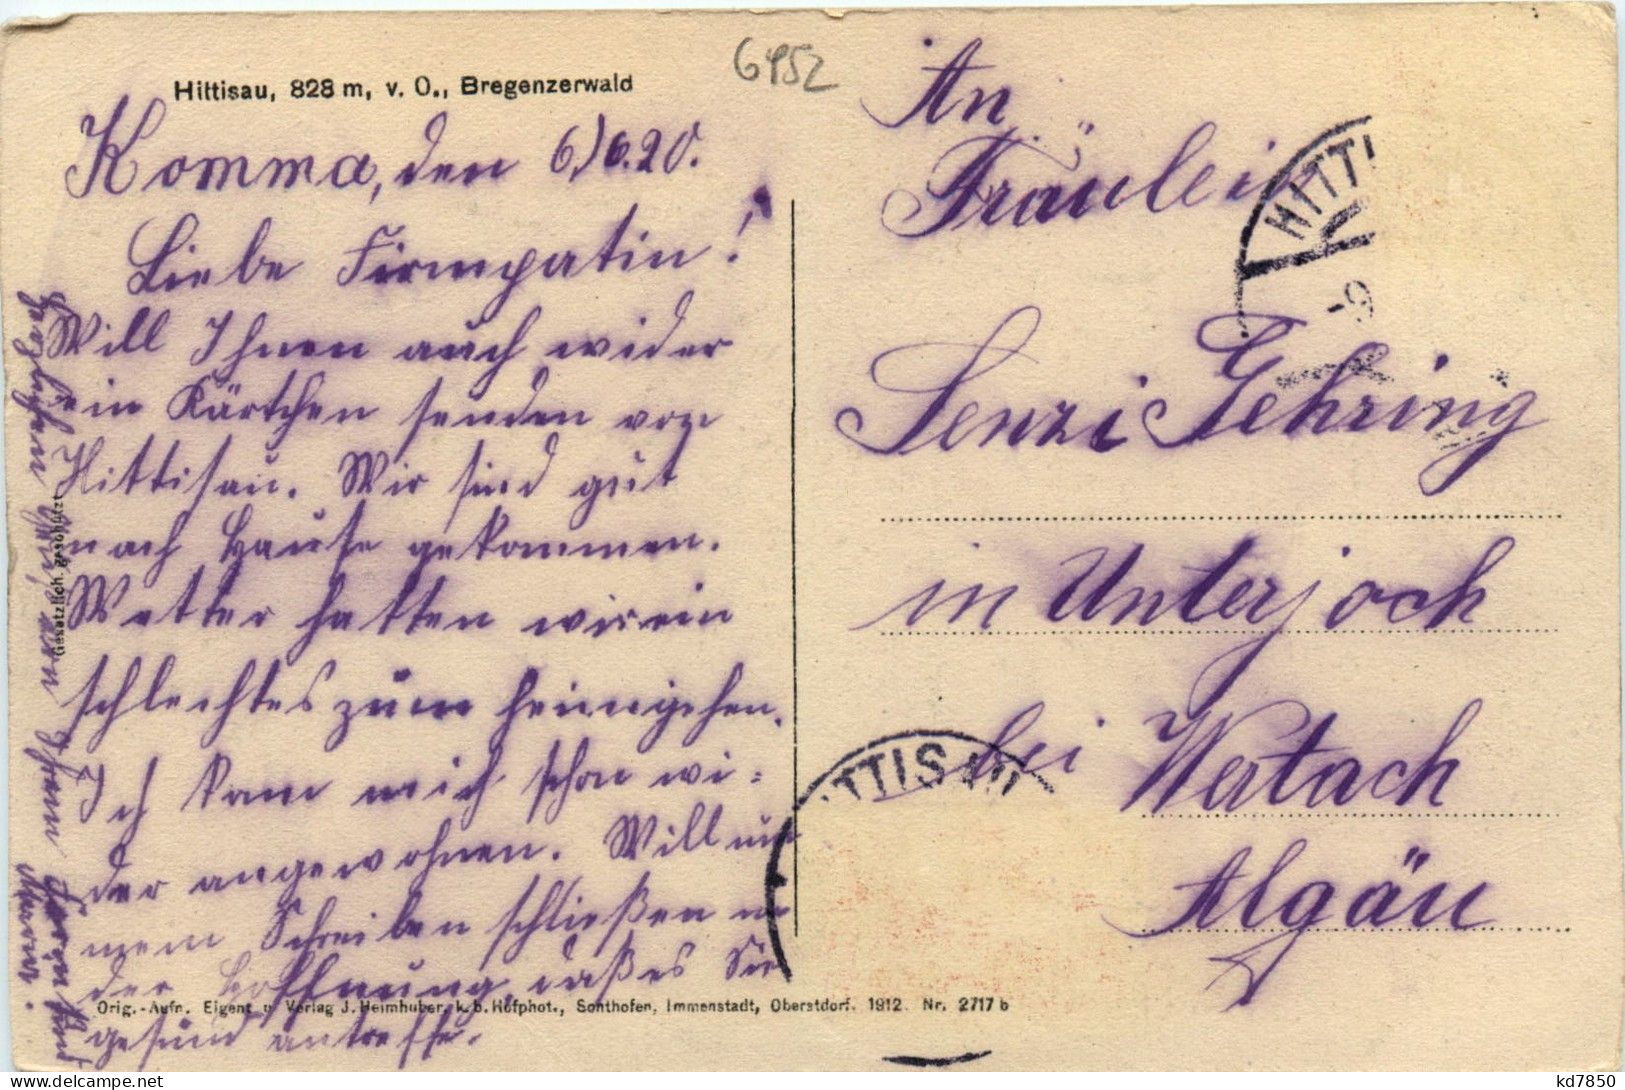 6452
Hittisau, 828 m, v. O., Bregenzerwald
Komma, den 6./6.20.
Liebe Firmpatin!
Will Ihnen auch wider
ein Kärtchen senden von
Hittisau. Wir sind gut
nach Hause gekommen.
Wetter hatten wir ein
schlechtes zum heimgehen.
Ich kam mich schon wi=
der angewohnen. Will mit
Schreiben schließen in
der Hoffnung daß es Sie
gesund antreffe.
von Ihrem
Gesetzlich geschützt
An
Fräulein
Senzi Gehring
in Unterjoch
bei Wertach
Algäu
HITTI
HITTISAU
Orig.-Aufn. Eigent. u. Verlag J. Heimhuber, k. b. Hofphot., Sonthofen, Immenstadt, Oberstdorf. 1912. Nr. 2717 b
kd7850